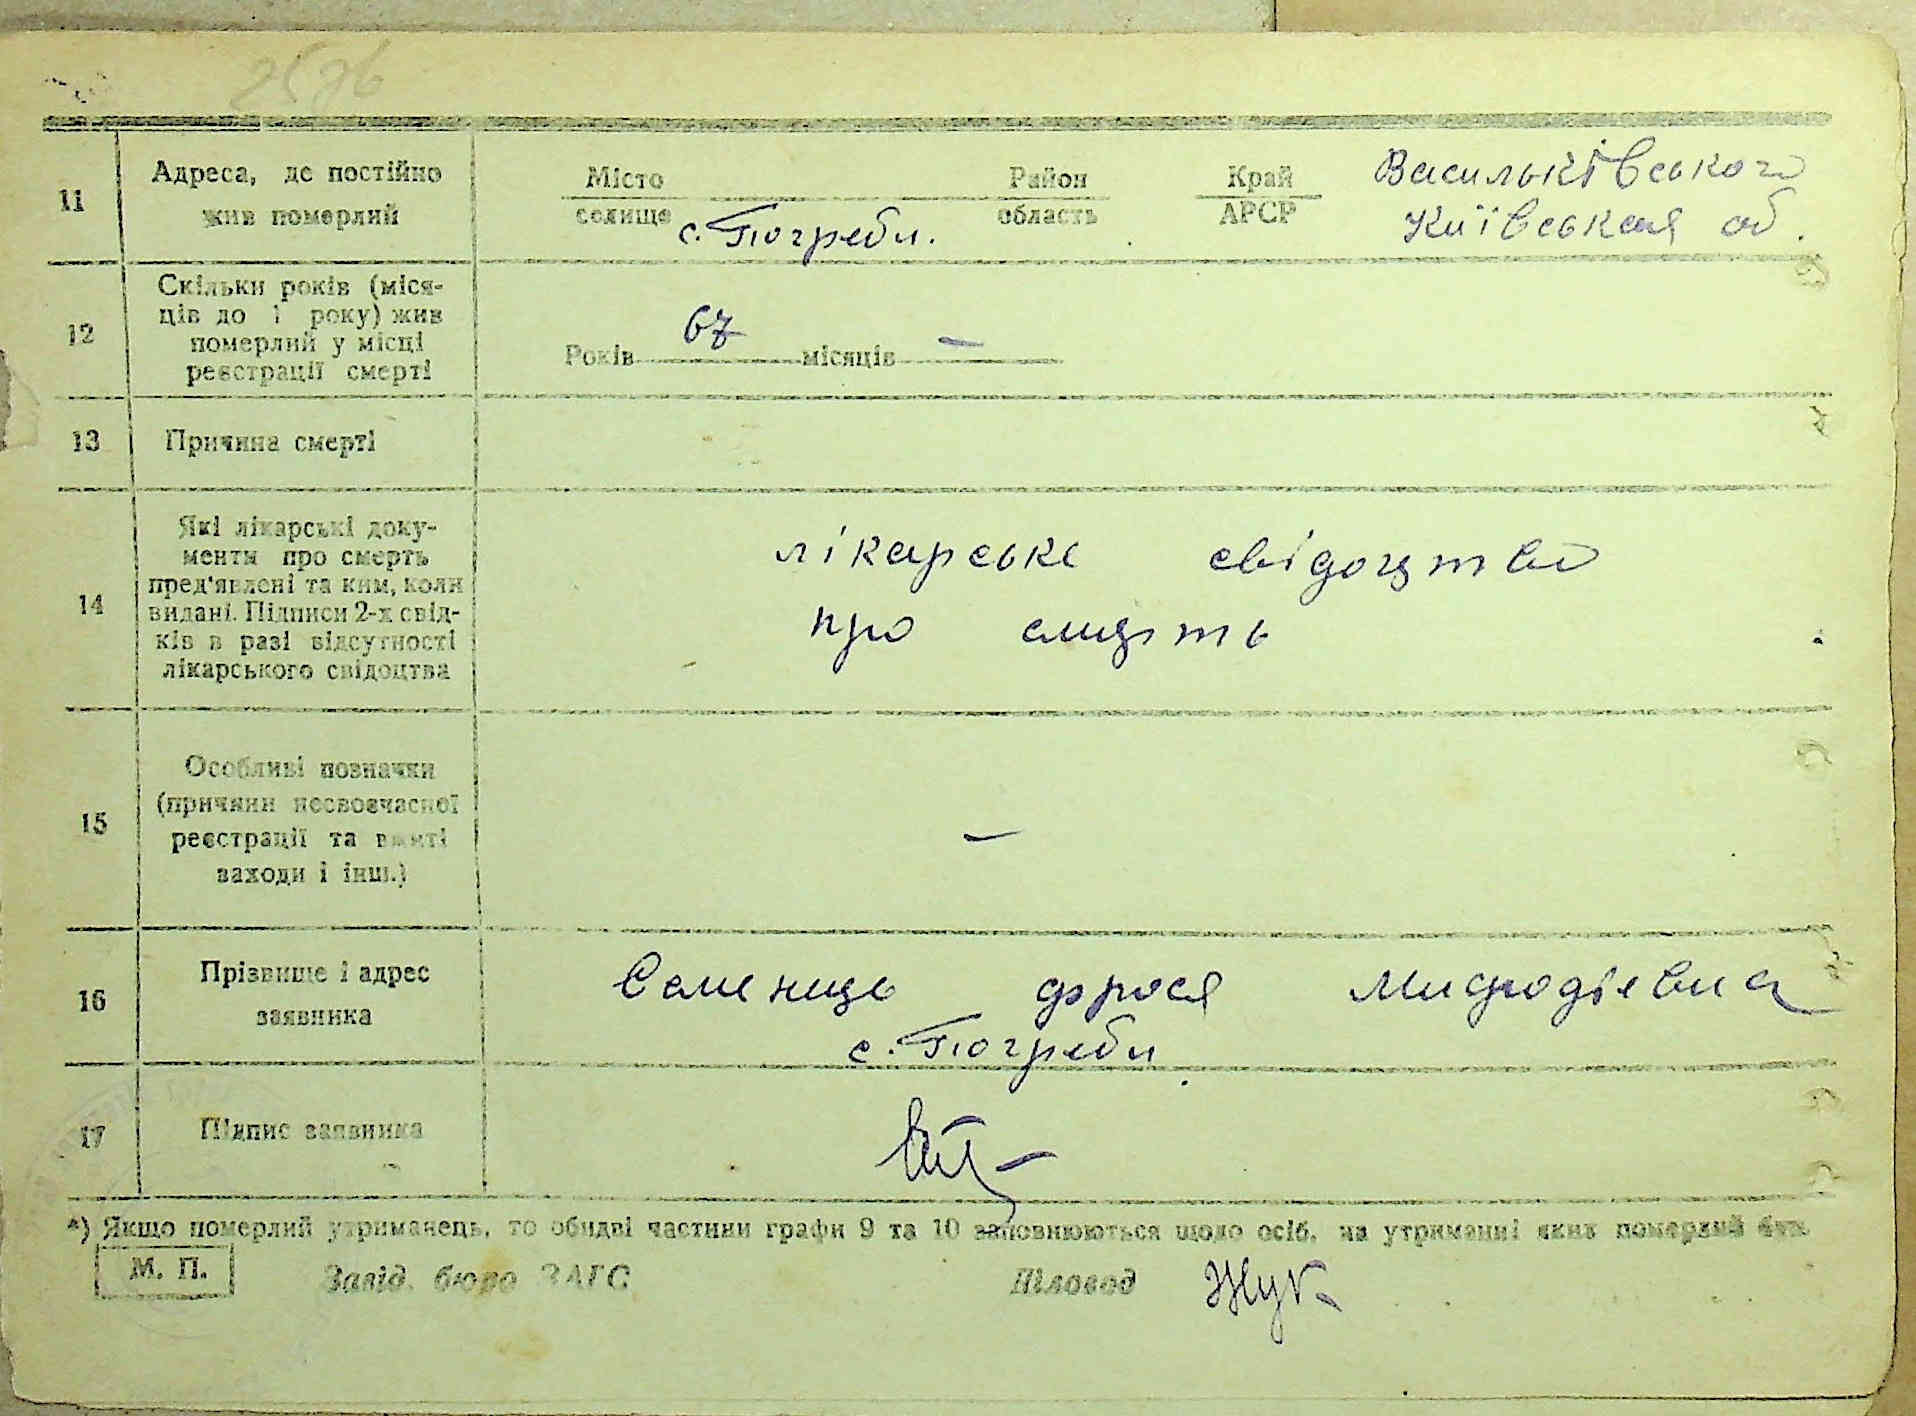 11
Адреса, де постійно
жив померлий
Місто
селище
с. Погреби.
Район
область
Край
АРСР
Васильківського
Київськая об.
12
Скільки років (міся-
ців до 1 року) жив
померлий у місці
реєстрації смерті
Років 67 місяців —
13
Причина смерті
14
Які лікарські доку-
менти про смерть
пред'явлені та ким, коли
видані. Підписи 2-х свід-
ків в разі відсутності
лікарського свідоцтва
лікарське свідоцтво
про смерть
15
Особливі позначки
(причини несвоєчасної
реєстрації та вжиті
заходи і інш.)
—
16
Прізвище і адрес
заявника
Семенець фрося Мифодієвна
с. Погреби
17
Підпис заявника
*) Якщо померлий утриманець, то обидві частини графи 9 та 10 заповнюються щодо осіб, на утриманні яких померлий був.
М. П.
Завід. бюро ЗАГС
Діловод Жук